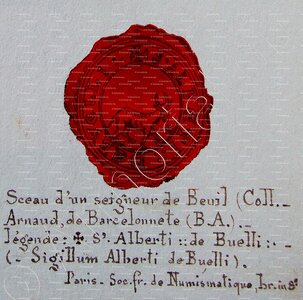 Sceau d'un seigneur de Beuil (Coll.
Arnaud, de Barcelonnete (B.A.).
légende: ✠ S' Alberti :: de Buelli :.
(: Sigillum Alberti de Buelli).
Paris. Soc. fr. de Numismatique, br. in 8º